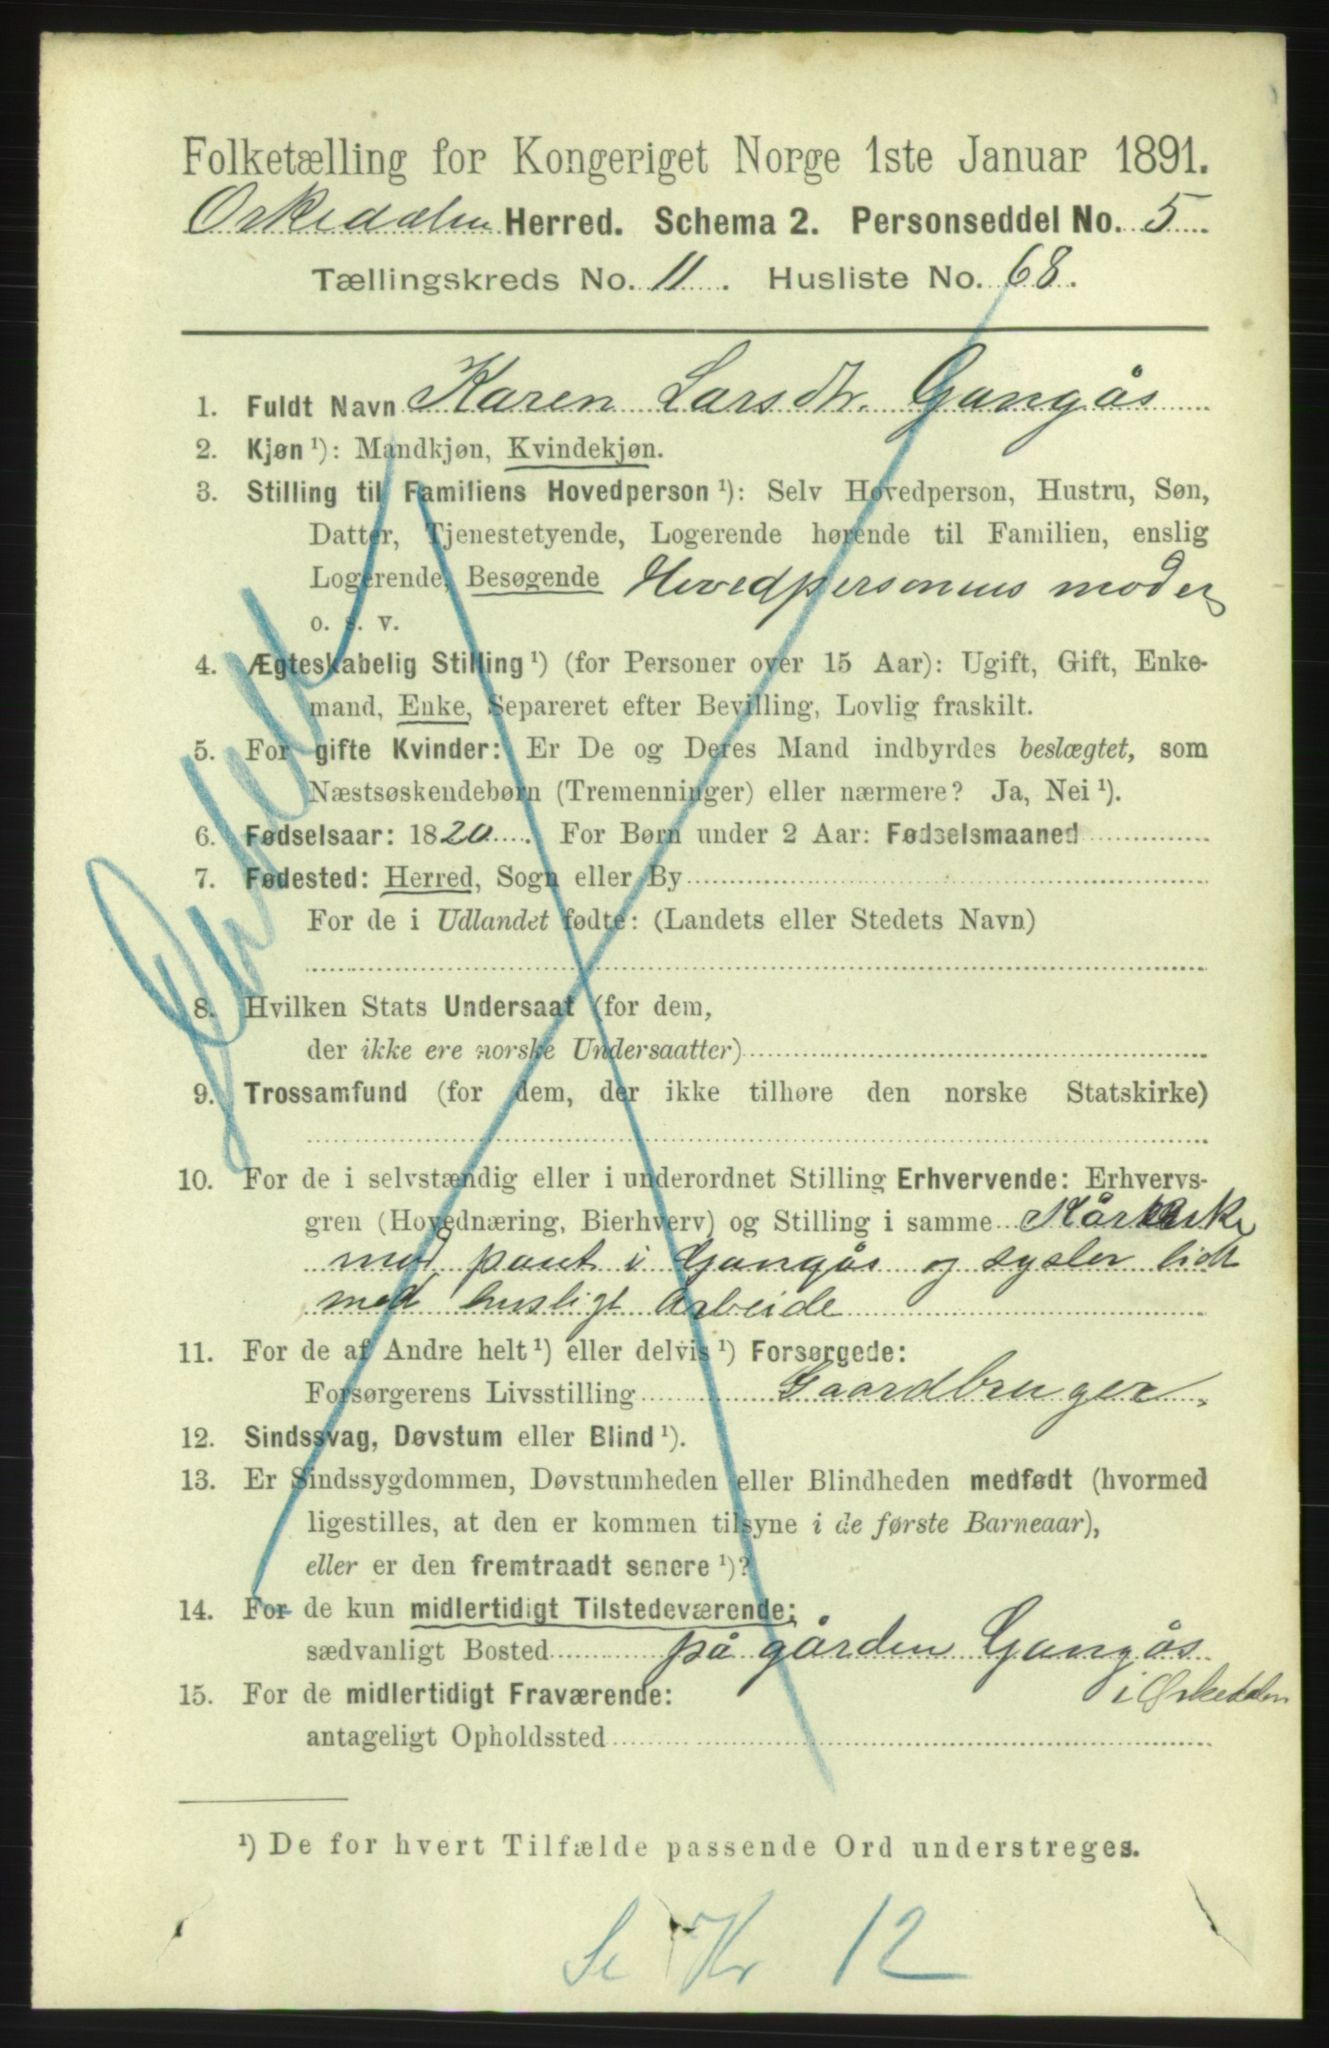 Folketælling for Kongeriget Norge 1ste Januar 1891.
Orkedalen Herred. Schema 2. Personseddel No. 5
Tællingskreds No. 11. Husliste No. 68.
1. Fuldt Navn Karen Larsdtr. Gangås
2. Kjøn ¹): Mandkjøn, Kvindekjøn.
3. Stilling til Familiens Hovedperson ¹): Selv Hovedperson, Hustru, Søn,
Datter, Tjenestetyende, Logerende hørende til Familien, enslig
Logerende, Besøgende Hovedpersonens moder
o. s. v.
4. Ægteskabelig Stilling ¹) (for Personer over 15 Aar): Ugift, Gift, Enke-
mand, Enke, Separeret efter Bevilling, Lovlig fraskilt.
5. For gifte Kvinder: Er De og Deres Mand indbyrdes beslægtet, som
Næstsøskendebørn (Tremenninger) eller nærmere? Ja, Nei ¹).
6. Fødselsaar: 1820. For Børn under 2 Aar: Fødselsmaaned
7. Fødested: Herred, Sogn eller By
For de i Udlandet fødte: (Landets eller Stedets Navn)
8. Hvilken Stats Undersaat (for dem,
der ikke ere norske Undersaatter)
9. Trossamfund (for dem, der ikke tilhøre den norske Statskirke)
10. For de i selvstændig eller i underordnet Stilling Erhvervende: Erhvervs-
gren (Hovednæring, Bierhverv) og Stilling i samme
med pant i Gangås og sysler lidt
med husligt Arbeide
11. For de af Andre helt ¹) eller delvis ¹) Forsørgede:
Forsørgerens Livsstilling Gaardbruger.
12. Sindssvag, Døvstum eller Blind ¹).
13. Er Sindssygdommen, Døvstumheden eller Blindheden medfødt (hvormed
ligestilles, at den er kommen tilsyne i de første Barneaar),
eller er den fremtraadt senere ¹)?
14. For de kun midlertidigt Tilstedeværende:
sædvanligt Bosted på gården Gangås
i Orkedalen
15. For de midlertidigt Fraværende:
antageligt Opholdssted
¹) De for hvert Tilfælde passende Ord understreges.
Se Kr 12